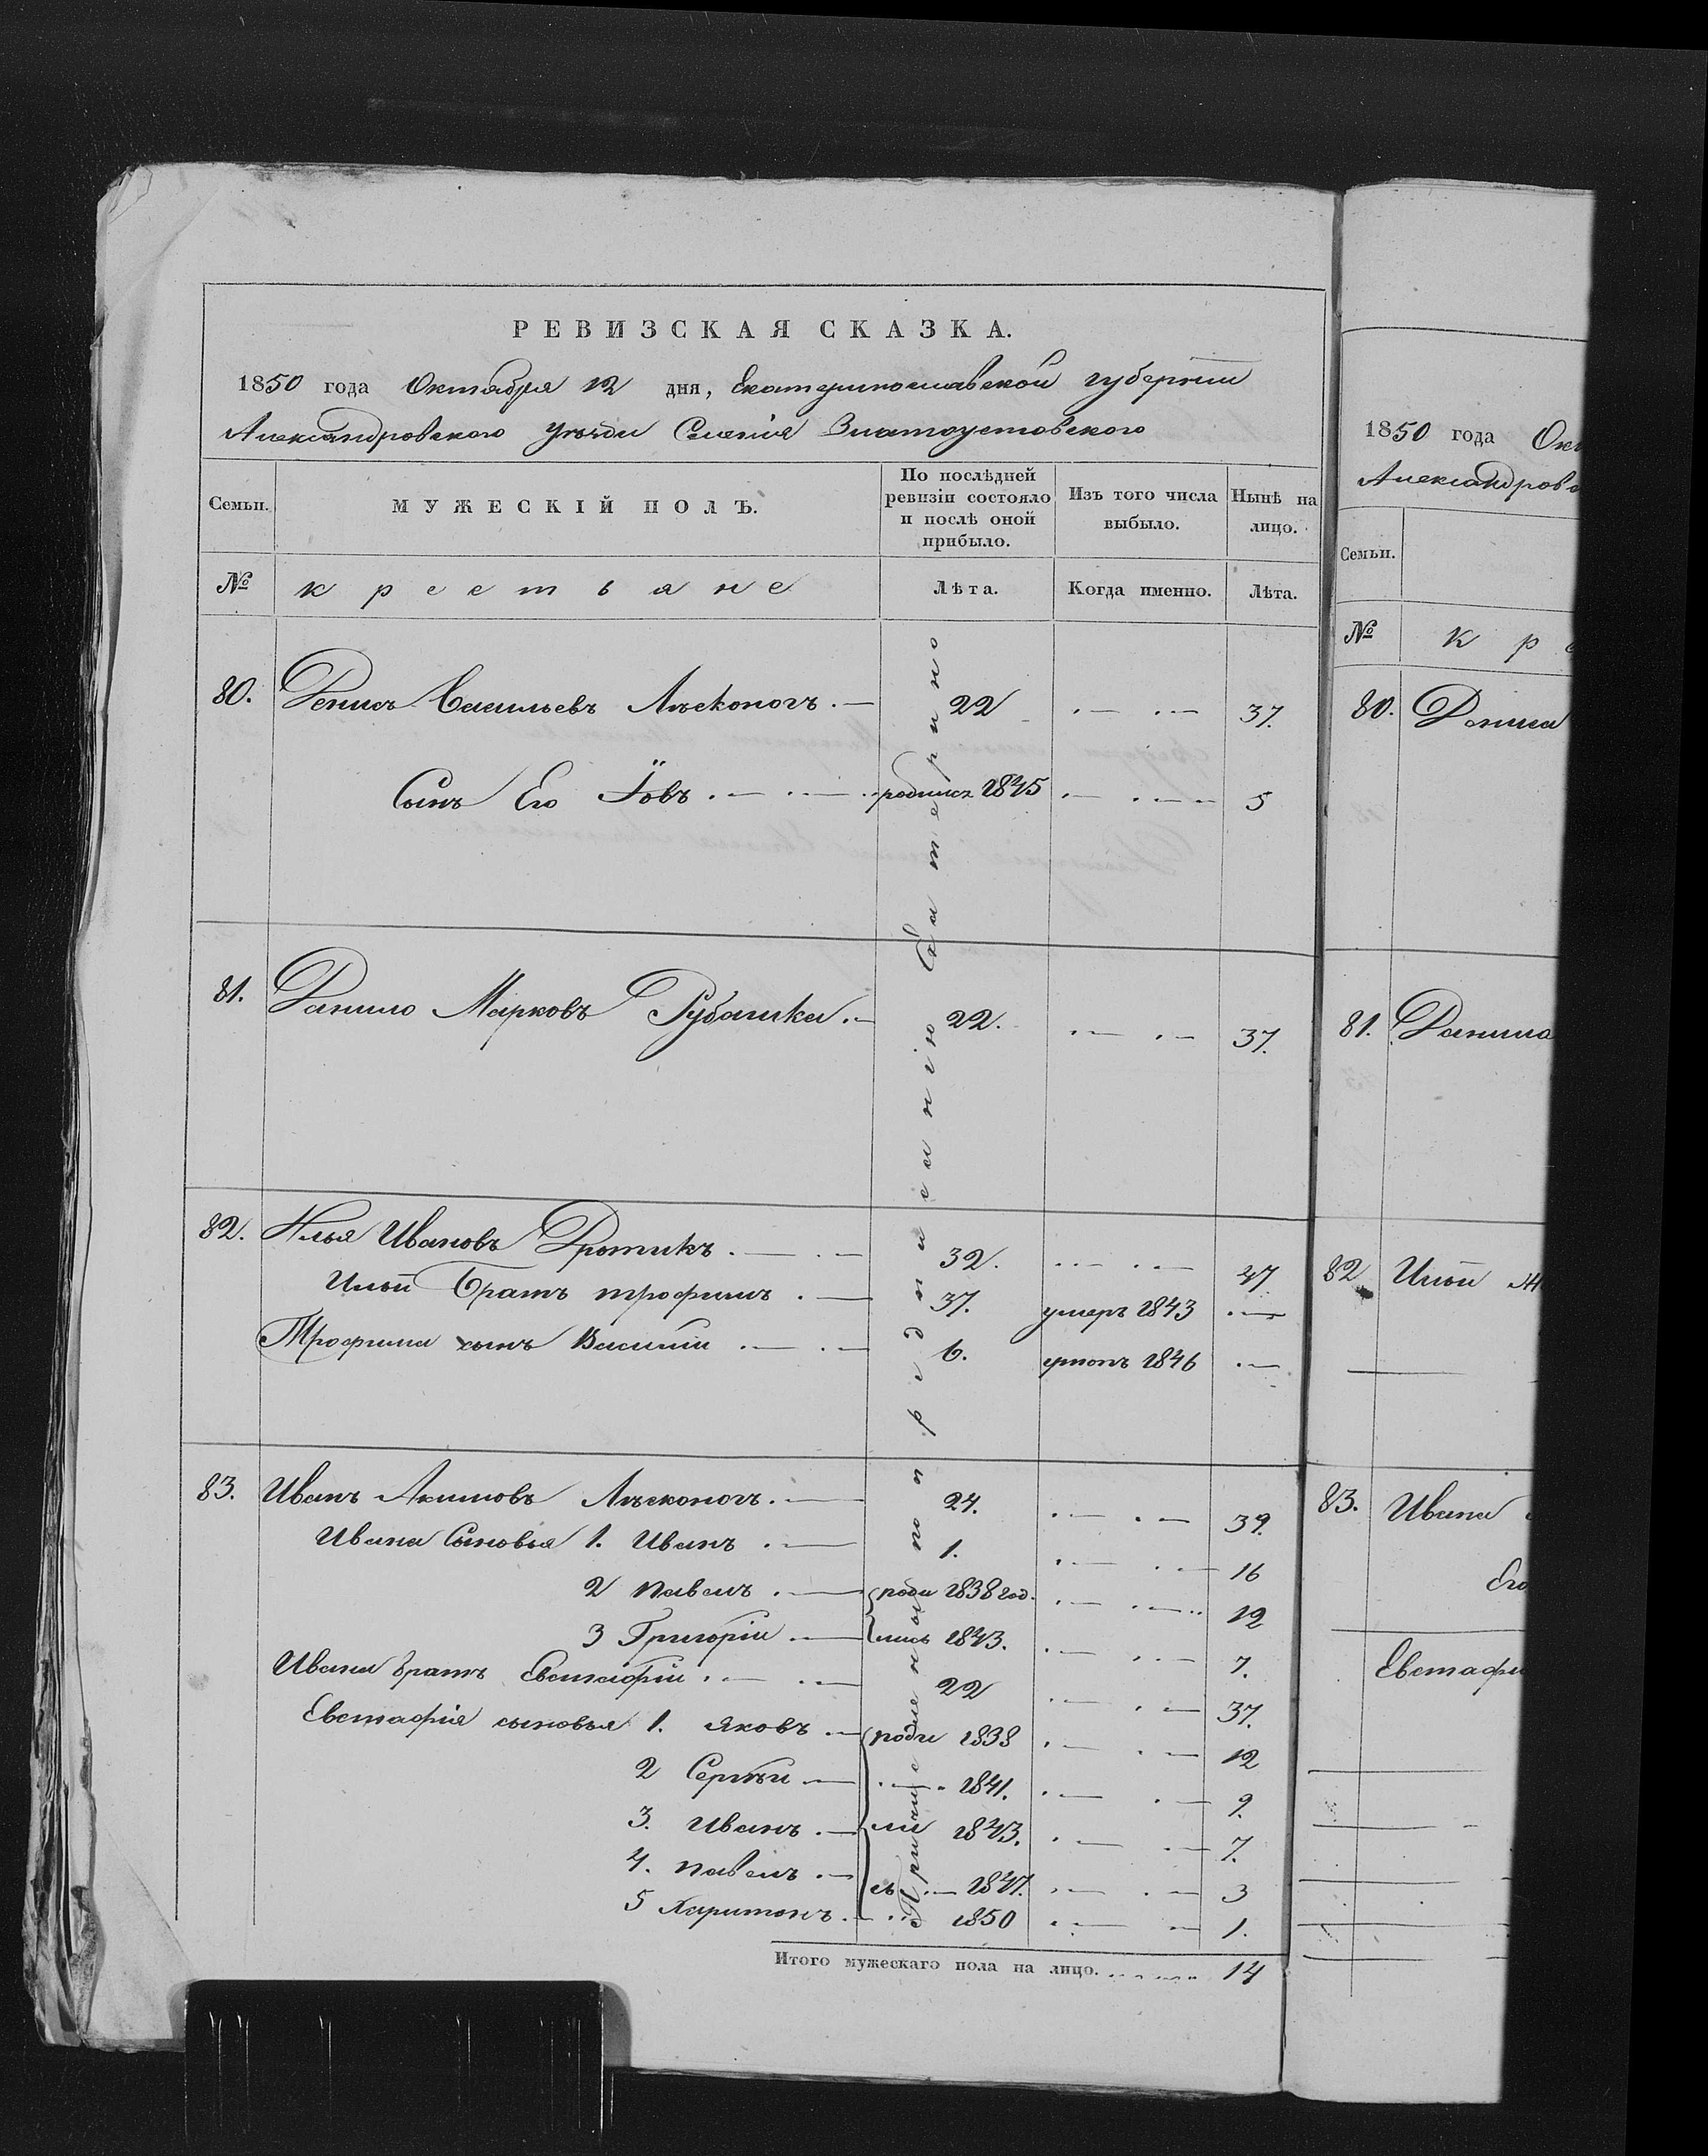 РЕВИЗСКАЯ СКАЗКА.
1850 года Октября 12 дня, Екатеринославской губернiи
Александровского уѣзда Селенія Златоустовского
Семьи.
МУЖЕСКІЙ ПОЛЪ.
По послѣдней ревизіи состояло и послѣ оной прибыло.
Изъ того числа выбыло.
Нынѣ на лицо.
№ крестьяне Лѣта. Когда именно. Лѣта.
80. Денисъ Васильевъ Лѣсконогъ 22 37.
Сынъ Его Іовъ родился 1845 5
81. Данило Марковъ Рубашка 22. 37.
82. Илья Ивановъ Дротикъ 32. 47
Ильи Братъ трофимъ 37. умеръ 1843
Трофима сынъ Василiй 6. 1846
83. Иванъ Акимовъ Лѣсконогъ 24. 39.
Ивана Сыновья 1. Иванъ 1. 16
2 павелъ роди 1838 год. 12
3 Григорiй лись 1843. 7.
Ивана братъ Евстафiй 22 37.
Евстафiя сыновья 1. яковъ роди 1838 12
2 Сергѣй 1841. 9.
3. Иванъ ли 1843. 7.
4. павелъ сь 1847. 3
5 Харитонъ 1850 1.
Причисленны по предписанію
Итого мужескаго пола на лицо. 14
1850 года Окт
Александровс
Семьи.
№ к р
80. Дениса
81. Данила
82 Ильи
83. Ивана
Его
Евстафи